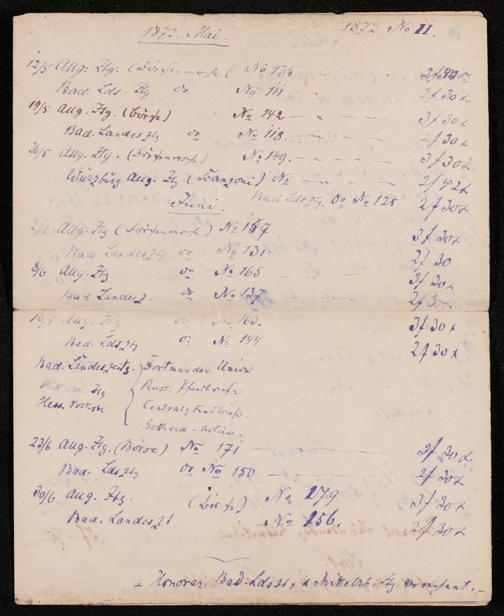 1872. Mai.
1872. No II.
12/5 Aug: Ztg: (Börsenwoche) No 135 3f 30x
Bad. Lds. Ztg do No 111 2f 30x
19/5 Aug. Ztg. (Börse) No 142 3f 30x
Bad. Landesztg do No 118 2f 30x
26/5 Aug. Ztg. (Börsenwoche) No 149. 3f 30x
Würzburg Aug. Ztg (Scanzoni) No 2f 42x
Bad Lds Ztg. do No 125 2f 30x
Juni.
2/6 Aug. Ztg (Börsenwoche) No 157 3f 30x
Bad. Landesztg do No 131 2f 30
9/6 Aug. Ztg do No 165 3f 30x
Bad. Landesz. do No 137 2f 30x
Aug. Ztg do No 163. 3f 30x
Bad. Ldsztg do No 144 2f 30x
Bad. Landesztg. Dortmunder Union
Russ. Pfandbriefe
Ztg
Hess. Central
Gotthard-actien
23/6 Aug. Ztg. (Börse) No 171 3f 30x
Bad. Ldsztg do No 150 2f 30x
30/6 Aug. Ztg. (Börse) No 179 3f 30x
Bad. Landeszt No 156. 2f 30x
Honorar Bad. Ldsztg &